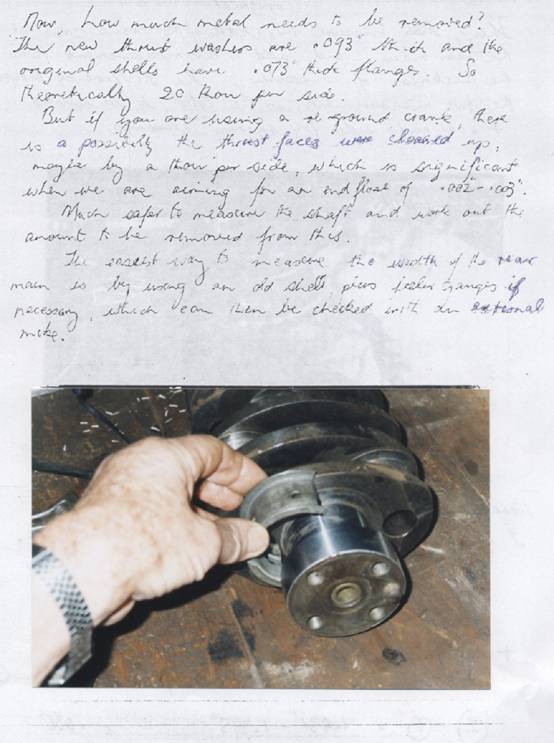 Now, how much metal needs to be removed?
The new thrust washers are .093" thick and the
original shells have .073" thick flanges. So
theoretically 20 thou per side.
But if you are using a re ground crank, there
is a possibility the thrust faces were cleaned up,
maybe by a thou per side, which is significant
when we are aiming for an endfloat of .002 - .003".
Much safer to measure the shaft and work out the
amount to be removed from this.
The easiest way to measure the width of the rear
main is by using an old shell plus feeler gauges if
necessary, which can then be checked with an external
mike.